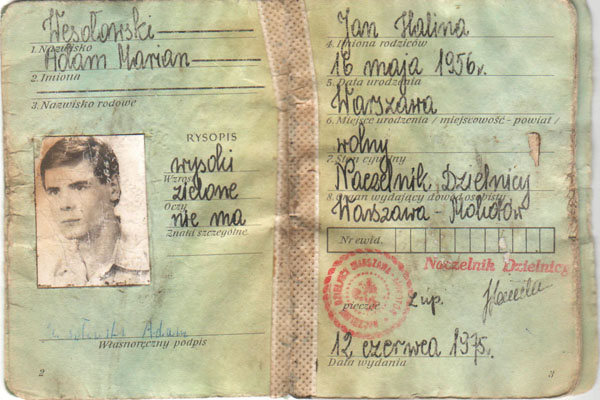 Wesołowski
1. Nazwisko
Adam Marian
2. Imiona
3. Nazwisko rodowe
RYSOPIS
wysoki
Wzrost
zielone
Oczy
nie ma
Znaki szczególne
Adam
Własnoręczny podpis
2
Jan Halina
4. Imiona rodziców
16 maja 1956r.
5. Data urodzenia
Warszawa
6. Miejsce urodzenia / miejscowość - powiat /
wolny
7. Stan cywilny
Naczelnik Dzielnicy
8. Organ wydający dowód osobisty
Warszawa - Mokotów
Nr ewid.
Naczelnik Dzielnicy
pieczęć
Zup.
12 czerwca 1975r.
Data wydania
3